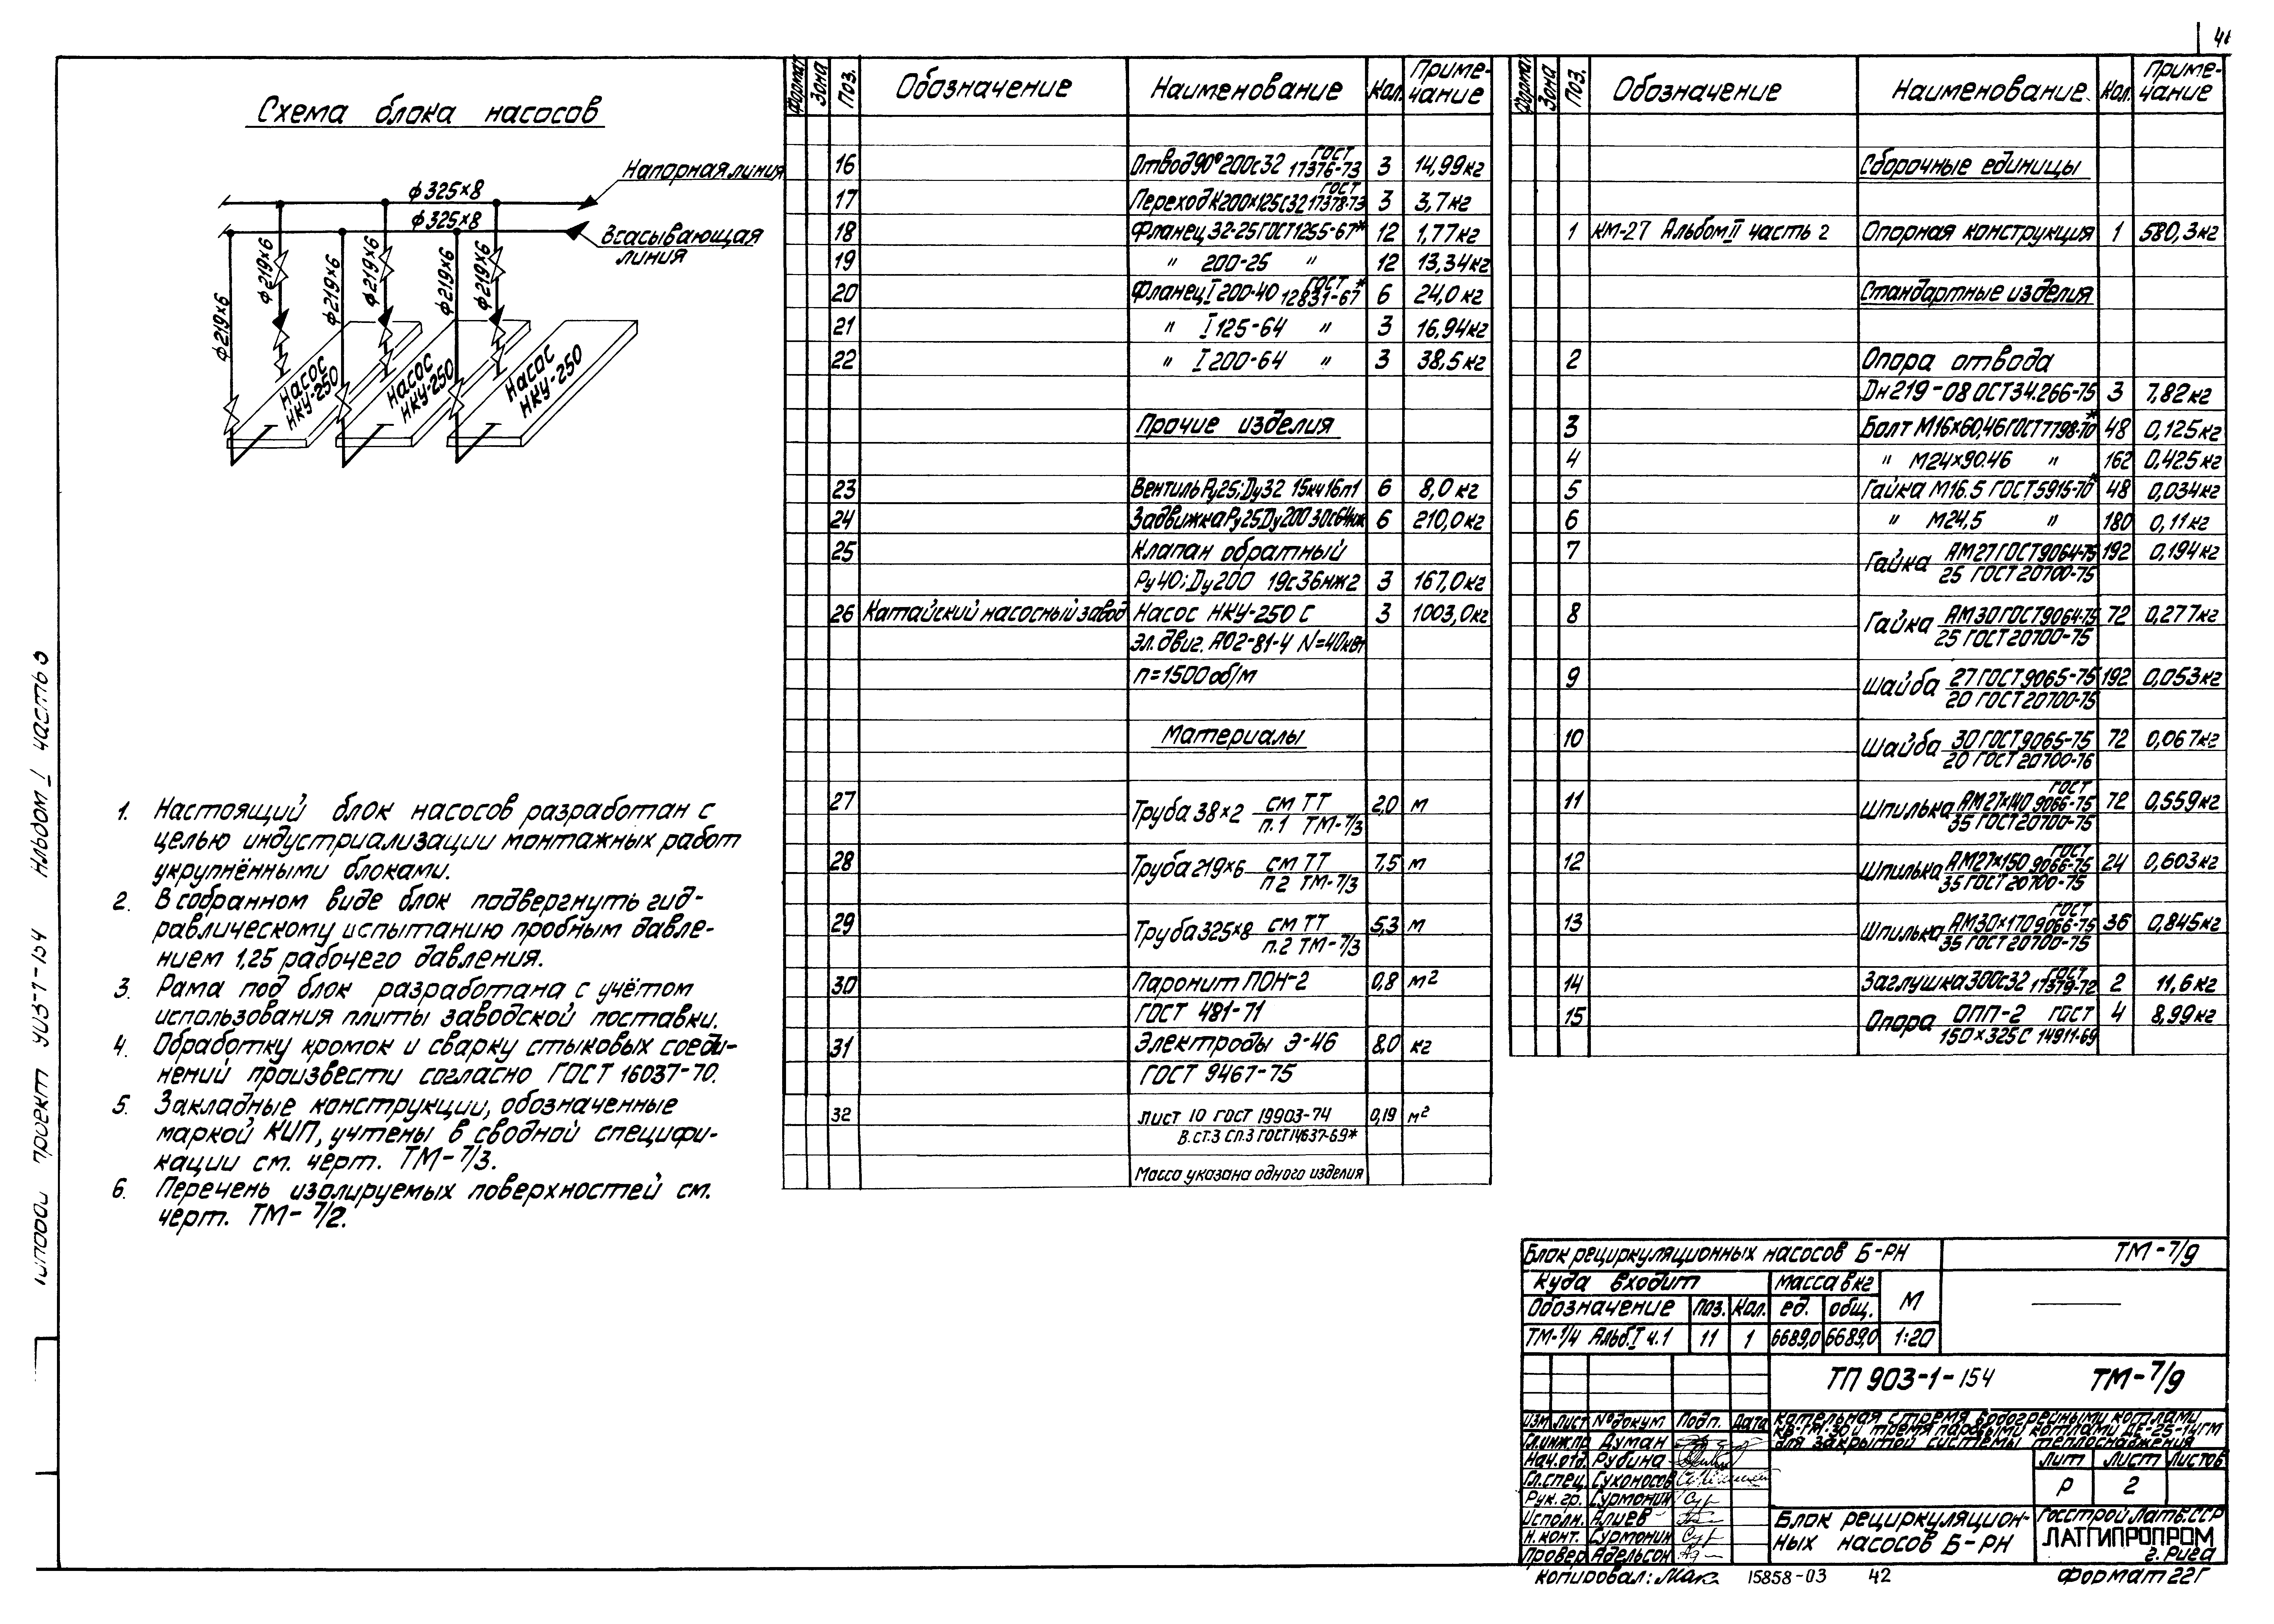 Схема блока насосов
Напорная линия
ф325×8
ф325×8
Всасывающая
линия
ф219×6
ф219×6
ф219×6
ф219×6
ф219×6
ф219×6
Насос НКУ-250
Насос НКУ-250
Насос НКУ-250
1. Настоящий блок насосов разработан с
целью индустриализации монтажных работ
укрупнёнными блоками.
2. В собранном виде блок подвергнуть гид-
равлическому испытанию пробным давле-
нием 1,25 рабочего давления.
3. Рама под блок разработана с учётом
использования плиты заводской поставки.
4. Обработку кромок и сварку стыковых соеди-
нений произвести согласно ГОСТ 16037-70.
5. Закладные конструкции, обозначенные
маркой КИП, учтены в сводной специфи-
кации см. черт. ТМ-7/3.
6. Перечень изолируемых поверхностей см.
черт. ТМ-7/2.
Формат Зона Поз. Обозначение Наименование Кол. Приме-чание
16 Отвод 90° 200с32 ГОСТ 17376-73 3 14,99кг
17 Переход К200×125с32 ГОСТ 17378-73 3 3,7кг
18 Фланец 32-25 ГОСТ 1255-67* 12 1,77кг
19 " 200-25 " 12 13,34кг
20 Фланец I 200-40 ГОСТ 12831-67* 6 24,0кг
21 " I 125-64 " 3 16,94кг
22 " I 200-64 " 3 38,5кг
Прочие изделия
23 Вентиль Ру25; Ду32 15кч16п1 6 8,0кг
24 Задвижка Ру25 Ду200 30с64нж 6 210,0кг
25 Клапан обратный
Ру40; Ду200 19с36нж2 3 167,0кг
26 Катайский насосный завод Насос НКУ-250 С 3 1003,0кг
эл. двиг. АО2-81-4 N=40квт
n=1500 об/м
Материалы
27 Труба 38×2 см ТТ п.1 ТМ-7/3 2,0 м
28 Труба 219×6 см ТТ п2 ТМ-7/3 7,5 м
29 Труба 325×8 см ТТ п.2 ТМ-7/3 5,3 м
30 Паронит ПОН-2 0,8 м²
ГОСТ 481-71
31 Электроды Э-46 8,0 кг
ГОСТ 9467-75
32 Лист 10 ГОСТ 19903-74 0,19 м²
В.ст.3 сп.3 ГОСТ 14637-69*
Масса указана одного изделия
Формат Зона Поз. Обозначение Наименование Кол. Приме-чание
Сборочные единицы
1 КМ-27 Альбом II часть 2 Опорная конструкция 1 580,3кг
Стандартные изделия
2 Опора отвода
Дн219-08 ОСТ34.266-75 3 7,82кг
3 Болт М16×60,46 ГОСТ 7798-70* 48 0,125кг
4 " М24×90.46 " 162 0,425кг
5 Гайка М16.5 ГОСТ 5915-70* 48 0,034кг
6 " М24,5 " 180 0,11кг
7 Гайка АМ27 ГОСТ 9064-75 25 ГОСТ 20700-75 192 0,194кг
8 Гайка АМ30 ГОСТ 9064-75 25 ГОСТ 20700-75 72 0,277кг
9 Шайба 27 ГОСТ 9065-75 20 ГОСТ 20700-75 192 0,053кг
10 Шайба 30 ГОСТ 9065-75 20 ГОСТ 20700-76 72 0,067кг
11 Шпилька АМ27×140 ГОСТ 9066-75 35 ГОСТ 20700-75 72 0,559кг
12 Шпилька АМ27×150 ГОСТ 9066-75 35 ГОСТ 20700-75 24 0,603кг
13 Шпилька АМ30×170 ГОСТ 9066-75 35 ГОСТ 20700-75 36 0,845кг
14 Заглушка 300с32 ГОСТ 17379-72 2 11,6кг
15 Опора ОПП-2 150×325С ГОСТ 14911-69 4 8,99кг
Блок рециркуляционных насосов Б-РН ТМ-7/9
Куда входит Масса в кг М
Обозначение Поз. Кол. ед. общ.
ТМ-1/4 Альб.I ч.1 11 1 6689,0 6689,0 1:20
ТП 903-1-154 ТМ-7/9
Изм Лист №докум Подп. Дата
Котельная с тремя водогрейными котлами
КВ-ГМ-30 и тремя паровыми котлами ДЕ-25-14ГМ
для закрытой системы теплоснабжения
Гл.инж.пр Думан
Нач.отд. Рубина
Гл.спец. Сухоносов
Рук. гр. Сурмонин
Исполн. Алиев
Н.конт. Сурмонин
Провер Адельсон
Лит Лист Листов
Р 2
Блок рециркуляцион-
ных насосов Б-РН
Госстрой Латв.ССР
ЛАТГИПРОПРОМ
г. Рига
Копировал: 15858-03 42 Формат 22Г
Альбом I часть 3
проект 903-1-154